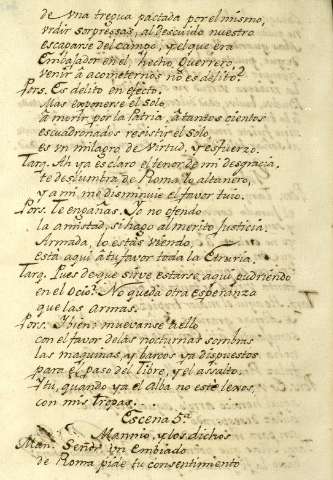 de vna tregua pactada por el mismo,
vrdir sorpressas, al descuido nuestro
escaparse del campo, y el que era
Embajador en el, hecho Guerrero,
venir â acometernos no es delito?
Pors. Es delito en efecto.
Mas exponerse el solo
â morir por la Patria, â tantos cientos
escuadronados resistir el solo,
es vn milagro de Virtud, y esfuerzo.
Tarq. Ah ya es claro el tenor de mi desgracia.
te deslumbra de Roma lo altanero,
y a mi me disminuie el favor tuio.
Pors. Te engañas. Yo no ofendo
la amistad, si hago al merito Justicia.
Armada, lo estás viendo,
està aqui a tu favor toda la Etruria.
Tarq. Pues de que sirve estarse aqui pudriendo
en el ocio? No queda otra esperanza
que las armas.
Pors. Y bien: muevanse â ello
con el favor de las nocturnas sombras
las maquinas, y barcos ya dispuestos
para el paso del Tibre, y el assalto.
Y tu, quando ya el Alba no esté lexos,
con mis tropas.
Escena 5ª
Mannio, y los dichos
Man. Señor, vn Embiado
de Roma pide tu consentimiento